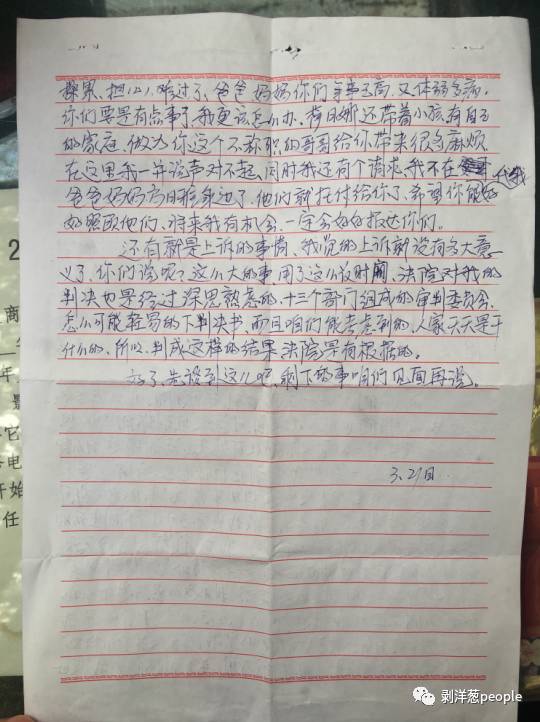 操累、担心、难过了、爸爸妈妈你们年事已高、又体弱多病、
你们要是有点事了、我更该怎么办、荷日娜还带着小孩有自己
的家庭、做为你这个不称职的哥哥给你带来很多麻烦
在这里我一并说声对不起、同时我还有个请求、我不在
爸爸妈妈 身边了、他们就托付给你了、希望你能好 代我
好照顾他们、将来我有机会、一定会好好报达你们。
还有就是上诉的事情、我觉的上诉都没有多大意
义了、你们说呢？这么大的事、用了这么长时间、法院对我的
判决也是经过深思熟虑的、十三个部门组成的审判委员会、
怎么可能轻易的下判决书、而且咱们能考虑到的、人家天天是干
什么的、所以、判成这样的结果法院是有根据的。
好了、先谈到这儿吧、剩下的事咱们见面再说。
3、21日
2
商
年
电
开始
任
剥洋葱people